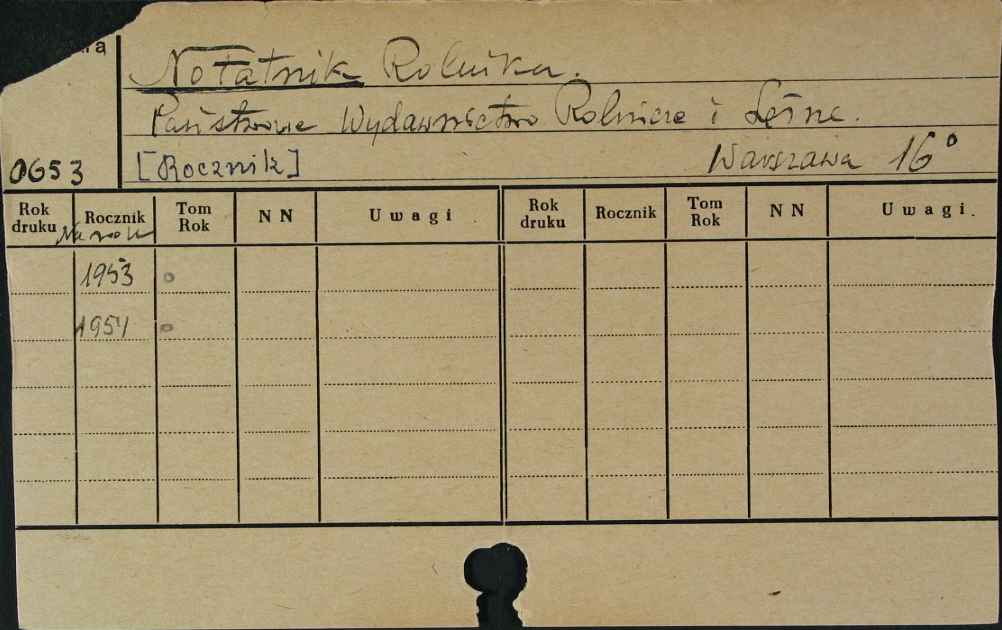 Notatnik Rolnika.
Państwowe Wydawnictwo Rolnicze i Leśne.
0653 [Rocznik] Warszawa 16°
Rok druku Rocznik Tom Rok NN Uwagi Rok druku Rocznik Tom Rok NN Uwagi.
Na rok
1953 o
1954 o